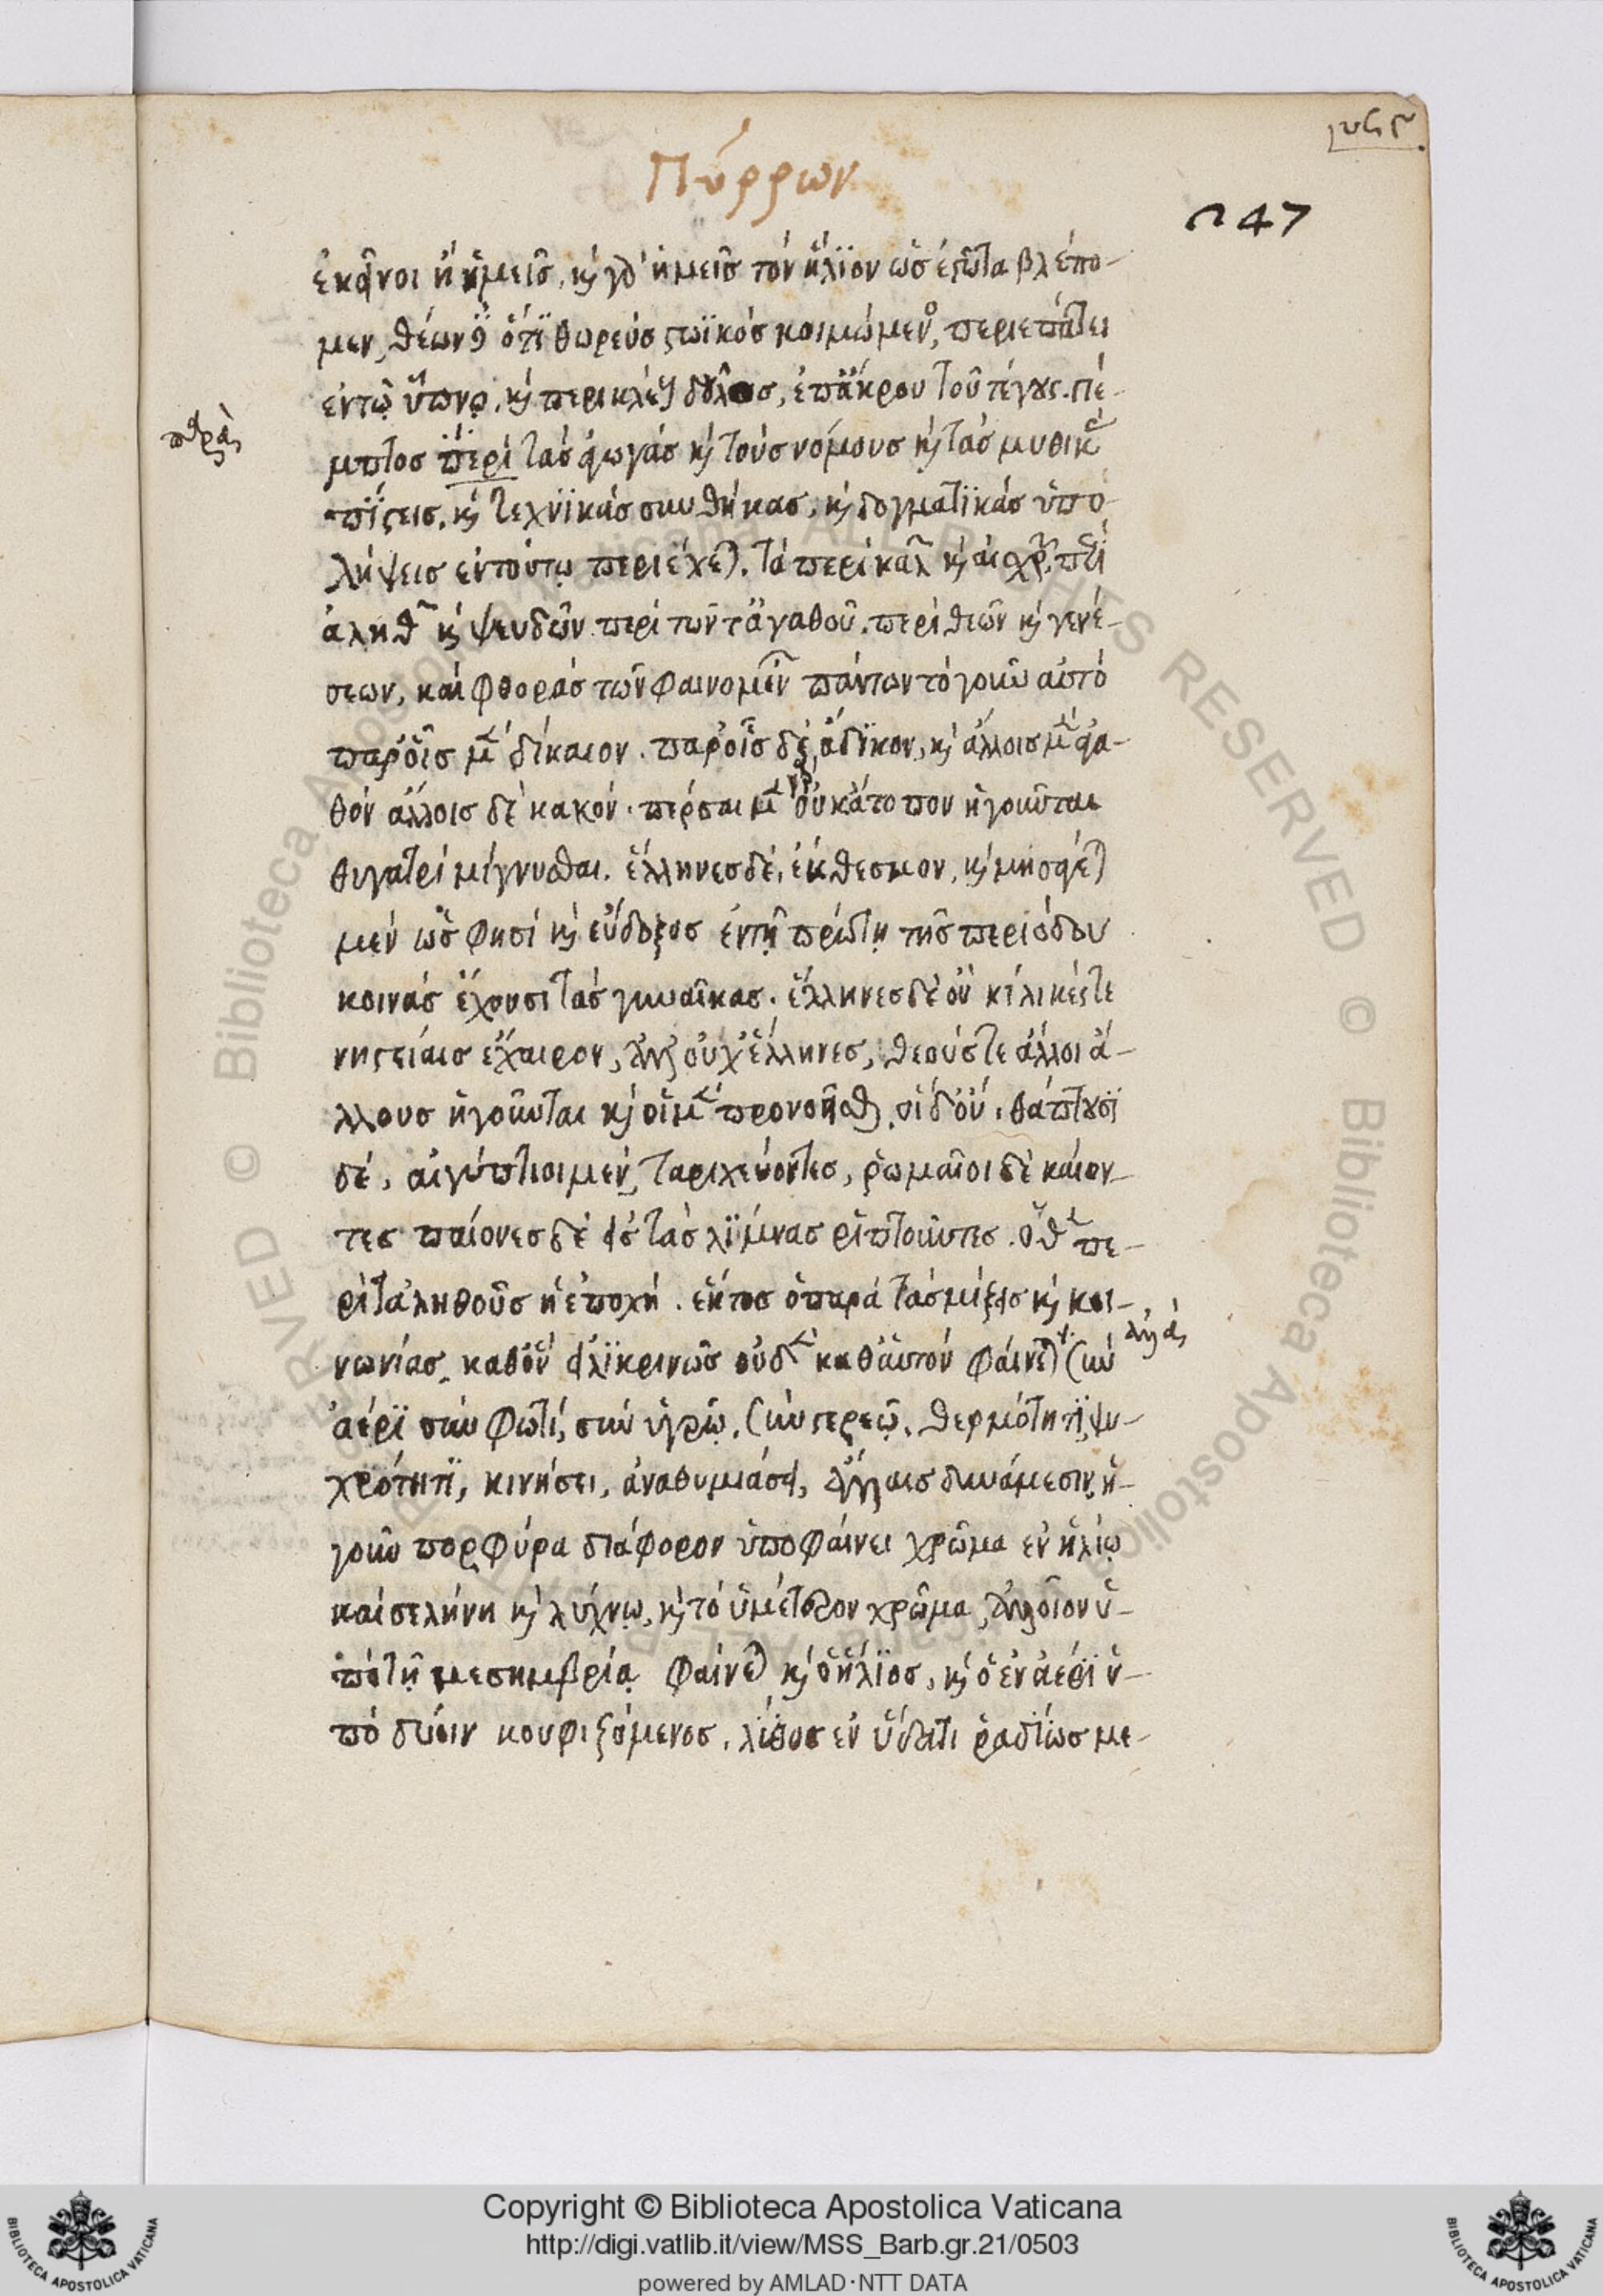 Πύρρων
247
ἐκεῖνοι ἢ ἡμεῖς, κ γὰρ ἡμεῖς τὸν ἥλϊον ὡς ἑστῶτα βλέπο-
μεν, θέων ὁ τϊθωρεὺς στωϊκὸς κοιμώμενος, περιεπάτει
ἐν τῷ ὕπνῳ. κ περικλέους δοῦλος, ἐπ' ἄκρου τοῦ τέγους. πέ-
παρὰ
μπτος περὶ τὰς ἀγωγὰς κ τοὺς νόμους κ τὰς μυθικὰς
πίστεις, κ τεχνϊκὰς συνθήκας, κ δογματϊκὰς ὑπο-
λήψεις ἐν τούτῳ περιέχεται. τὰ περὶ καλῶν κ αἰσχρῶν, περὶ
ἀληθῶν κ ψευδῶν. περὶ τῶν τἀγαθοῦ. περὶ θεῶν κ γενέ-
σεων, καὶ φθορᾶς τῶν φαινομένων πάντων τὸ γοῦν αὐτὸ
παρ' οἷς μὲν δίκαιον. παρ' οἷς δὲ, ἄδϊκον, κ ἄλλοις μὲν ἀγα-
θὸν ἄλλοις δὲ κακόν. πέρσαι μὲν γὰρ οὐκ ἄτοπον ἡγοῦνται
θυγατρὶ μίγνυσθαι. ἕλληνες δὲ, ἔκθεσμον, κ μασσαγέται
μὲν ὥς φησι κ εὔδοξος ἐν τῇ πρώτῃ τῆς περιόδου
κοινὰς ἔχουσι τὰς γυναῖκας. ἕλληνες δὲ οὔ κίλικές τε
νηστείαις ἔχαιρον, ἀλλ' οὐχ ἕλληνες, θεούς τε ἄλλοι ἄ-
λλους ἡγοῦνται κ οἱ μὲν προνοεῖσθαι, οἱ δ' οὔ. θάπτουσϊ
δὲ, αἰγύπτιοι μὲν, ταριχεύοντες, ῥωμαῖοι δὲ καίον-
τες παίονες δὲ εἰς τὰς λϊμνας ῥιπτοῦντες. ὅθεν πε-
ρὶ τἀληθοῦς ἡ ἐποχή. ἕκτος ὁ παρὰ τὰς μίξεις κ κοι-
νωνίας, καθ' ὃν εἰλϊκρινῶς οὐδὲν καθ' αὑτὸν φαίνεται σὺν
ἀλλὰ
ἀέρϊ σὺν φωτὶ, σὺν ὑγρῷ, σὺν στερεῷ, θερμότητϊ, ψυ-
χρότητϊ, κινήσει, ἀναθυμιάσει, ἄλλαις δυνάμεσιν, ἡ-
γοῦν πορφύρα διάφορον ὑποφαίνει χρῶμα ἐν ἡλίῳ
καὶ σελήνῃ κ λύχνῳ, κ τὸ ὑμέτερον χρῶμα, ἀλλοῖον ὑ-
πὸ τῇ μεσημβρίᾳ φαίνεται κ ὁ ἥλϊος, κ ὁ ἐν ἀέρϊ ὑ-
πὸ δυοῖν κουφιζόμενος, λίθος ἐν ὕδατι ῥαδϊως με-
Copyright © Biblioteca Apostolica Vaticana
http://digi.vatlib.it/view/MSS_Barb.gr.21/0503
powered by AMLAD·NTT DATA